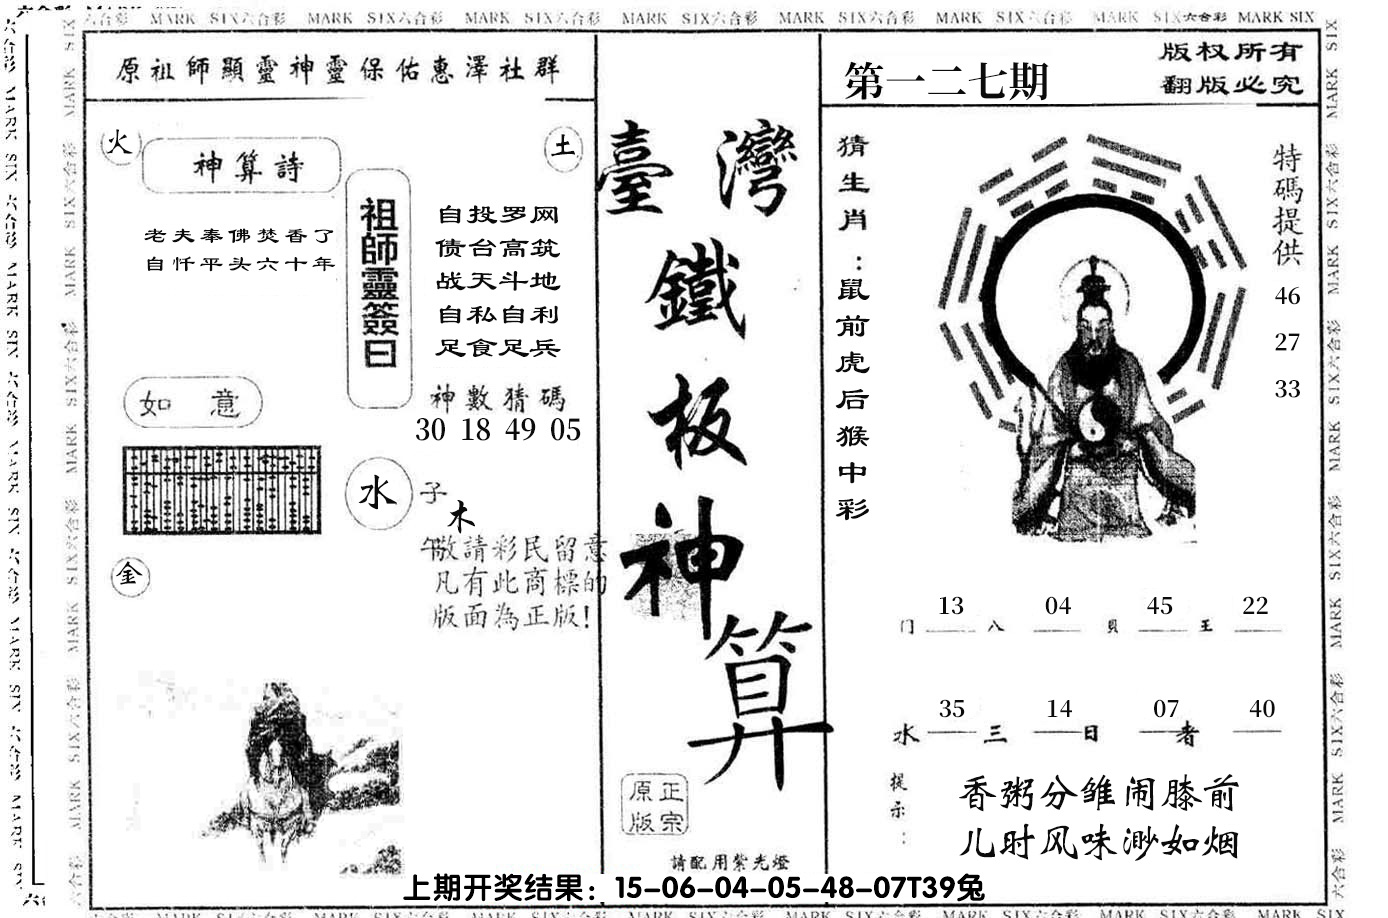 六合彩 MARK SIX六合彩 MARK SIX六合彩 MARK SIX六合彩 MARK SIX六合彩 MARK SIX六合彩 MARK SIX六合彩 MARK SIX六合彩 MARK SIX
原祖師顯靈神靈保佑惠澤社群
火
土
神算詩
老夫奉佛焚香了
自忏平头六十年
祖師靈簽曰
自投罗网
债台高筑
战天斗地
自私自利
足食足兵
神數猜碼
30 18 49 05
如 意
水
子
木
午
敬請彩民留意
凡有此商標的
版面為正版!
金
臺灣
鐵
板
神
算
正宗
原版
請配用紫光燈
第一二七期
版权所有
翻版必究
猜生肖:鼠前虎后猴中彩
特碼提供
46
27
33
13 04 45 22
门 八 貝 王
35 14 07 40
水 三 日 者
提示:
香粥分雏闹膝前
儿时风味渺如烟
上期开奖结果：15-06-04-05-48-07T39兔